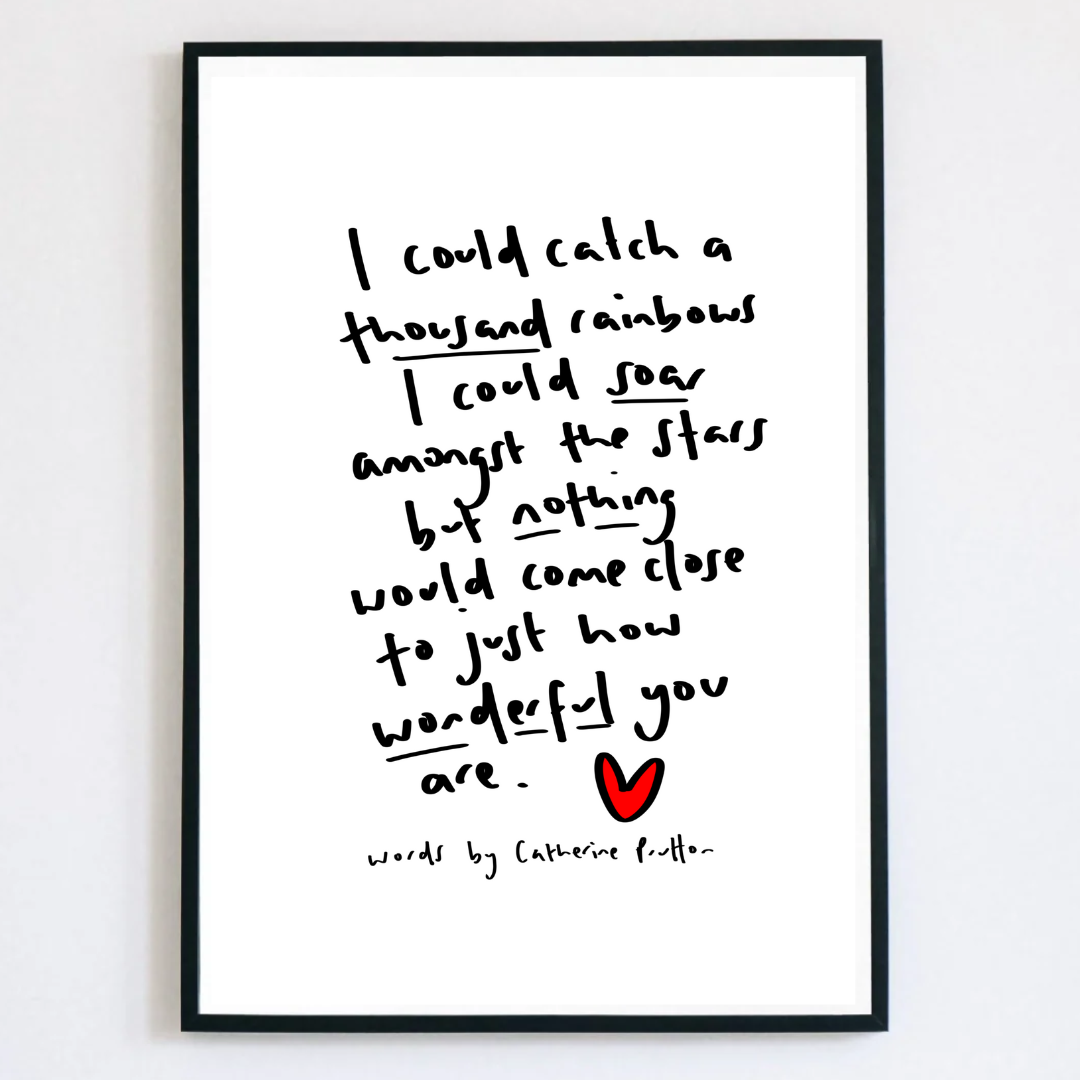 I could catch a
thousand rainbows
I could soar
amongst the stars
but nothing
would come close
to just how
wonderful you
are.
words by Catherine Prutton